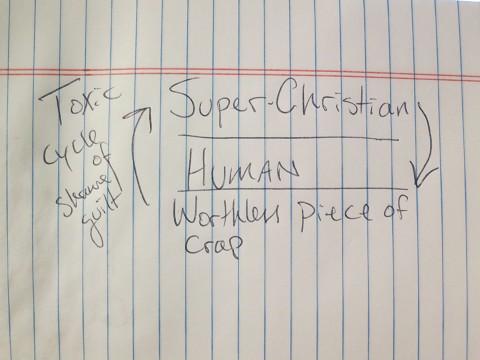 Toxic
cycle
of
shame
guilt
Super-Christian
HUMAN
Worthless piece of
crap